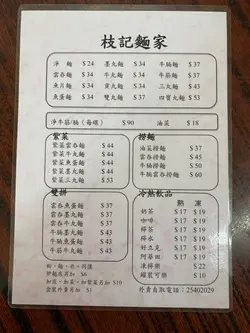 枝記麵家
淨麵 $24 墨丸麵 $34 牛腩麵 $37
雲吞麵 $34 牛丸麵 $34 牛筋麵 $37
魚片麵 $34 貢丸麵 $34 三丸麵 $43
魚蛋麵 $34 雙丸麵 $37 四寶丸麵 $53
淨牛筋/腩(每碟) $90 油菜 $18
紫菜
紫菜雲吞麵 $44
紫菜魚片麵 $44
紫菜魚蛋麵 $44
紫菜墨丸麵 $44
紫菜三丸麵 $53
撈麵
油菜撈麵 $37
雲吞撈麵 $45
牛腩撈麵 $60
牛筋撈麵 $60
雙拼
雲吞魚蛋麵 $37
雲吞牛丸麵 $37
牛腩墨丸麵 $43
牛腩魚蛋麵 $43
牛筋魚蛋麵 $43
冷熱飲品
熱 凍
奶茶 $17 $19
咖啡 $17 $19
檸茶 $17 $19
檸水 $17 $19
好立克 $17 $19
阿華田 $17 $19
凍檸樂 $22
罐裝可樂 $10
粉、麵、米、河僅
伊麵首另加 $6
加底、加菜、加紫菜另加 $10
盒裝外賣另加 $1
外賣自取電話:25402029